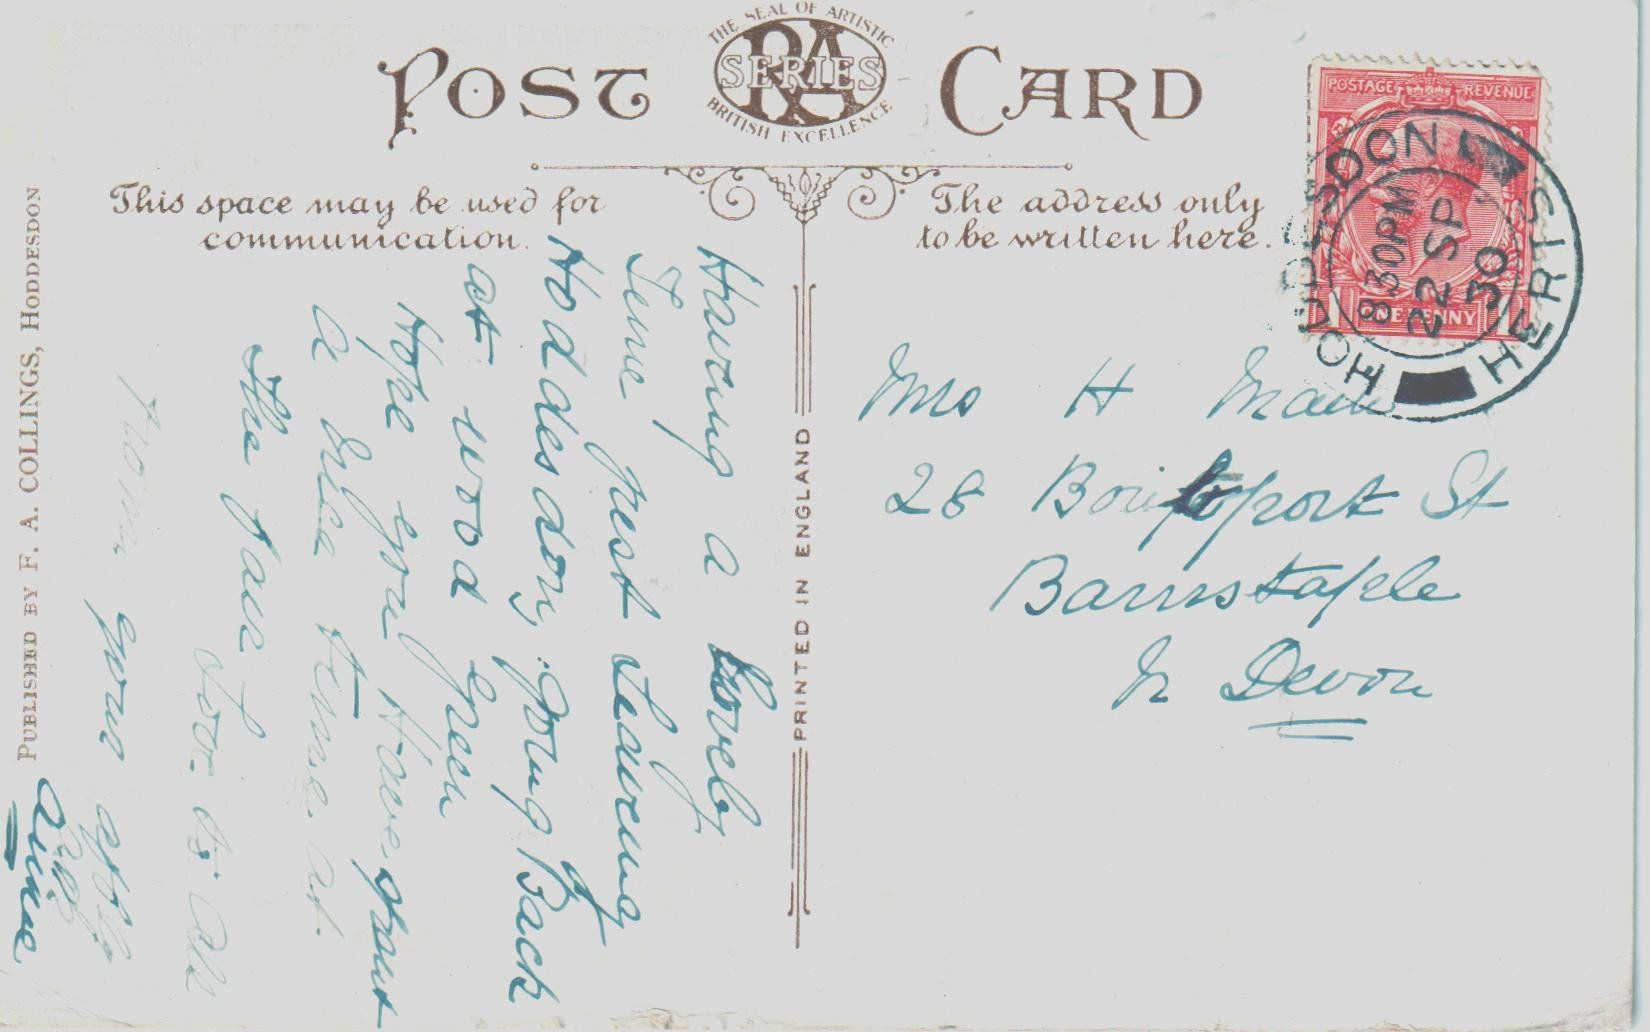 THE SEAL OF ARTISTIC
POST RA SERIES CARD
BRITISH EXCELLENCE
This space may be used for
communication.
The address only
to be written here.
POSTAGE REVENUE
ONE PENNY
HODDESDON HERTS
830PM
22 SP
30
PUBLISHED BY F. A. COLLINGS, HODDESDON
PRINTED IN ENGLAND
Having a Lovely
Time just Leaving
Hoddesdon, going Back
at wood green
Hope you Have spent
a Nice Time at
the
Love to all
From your
Mrs H
28 Boutport St
Barnstaple
N Devon